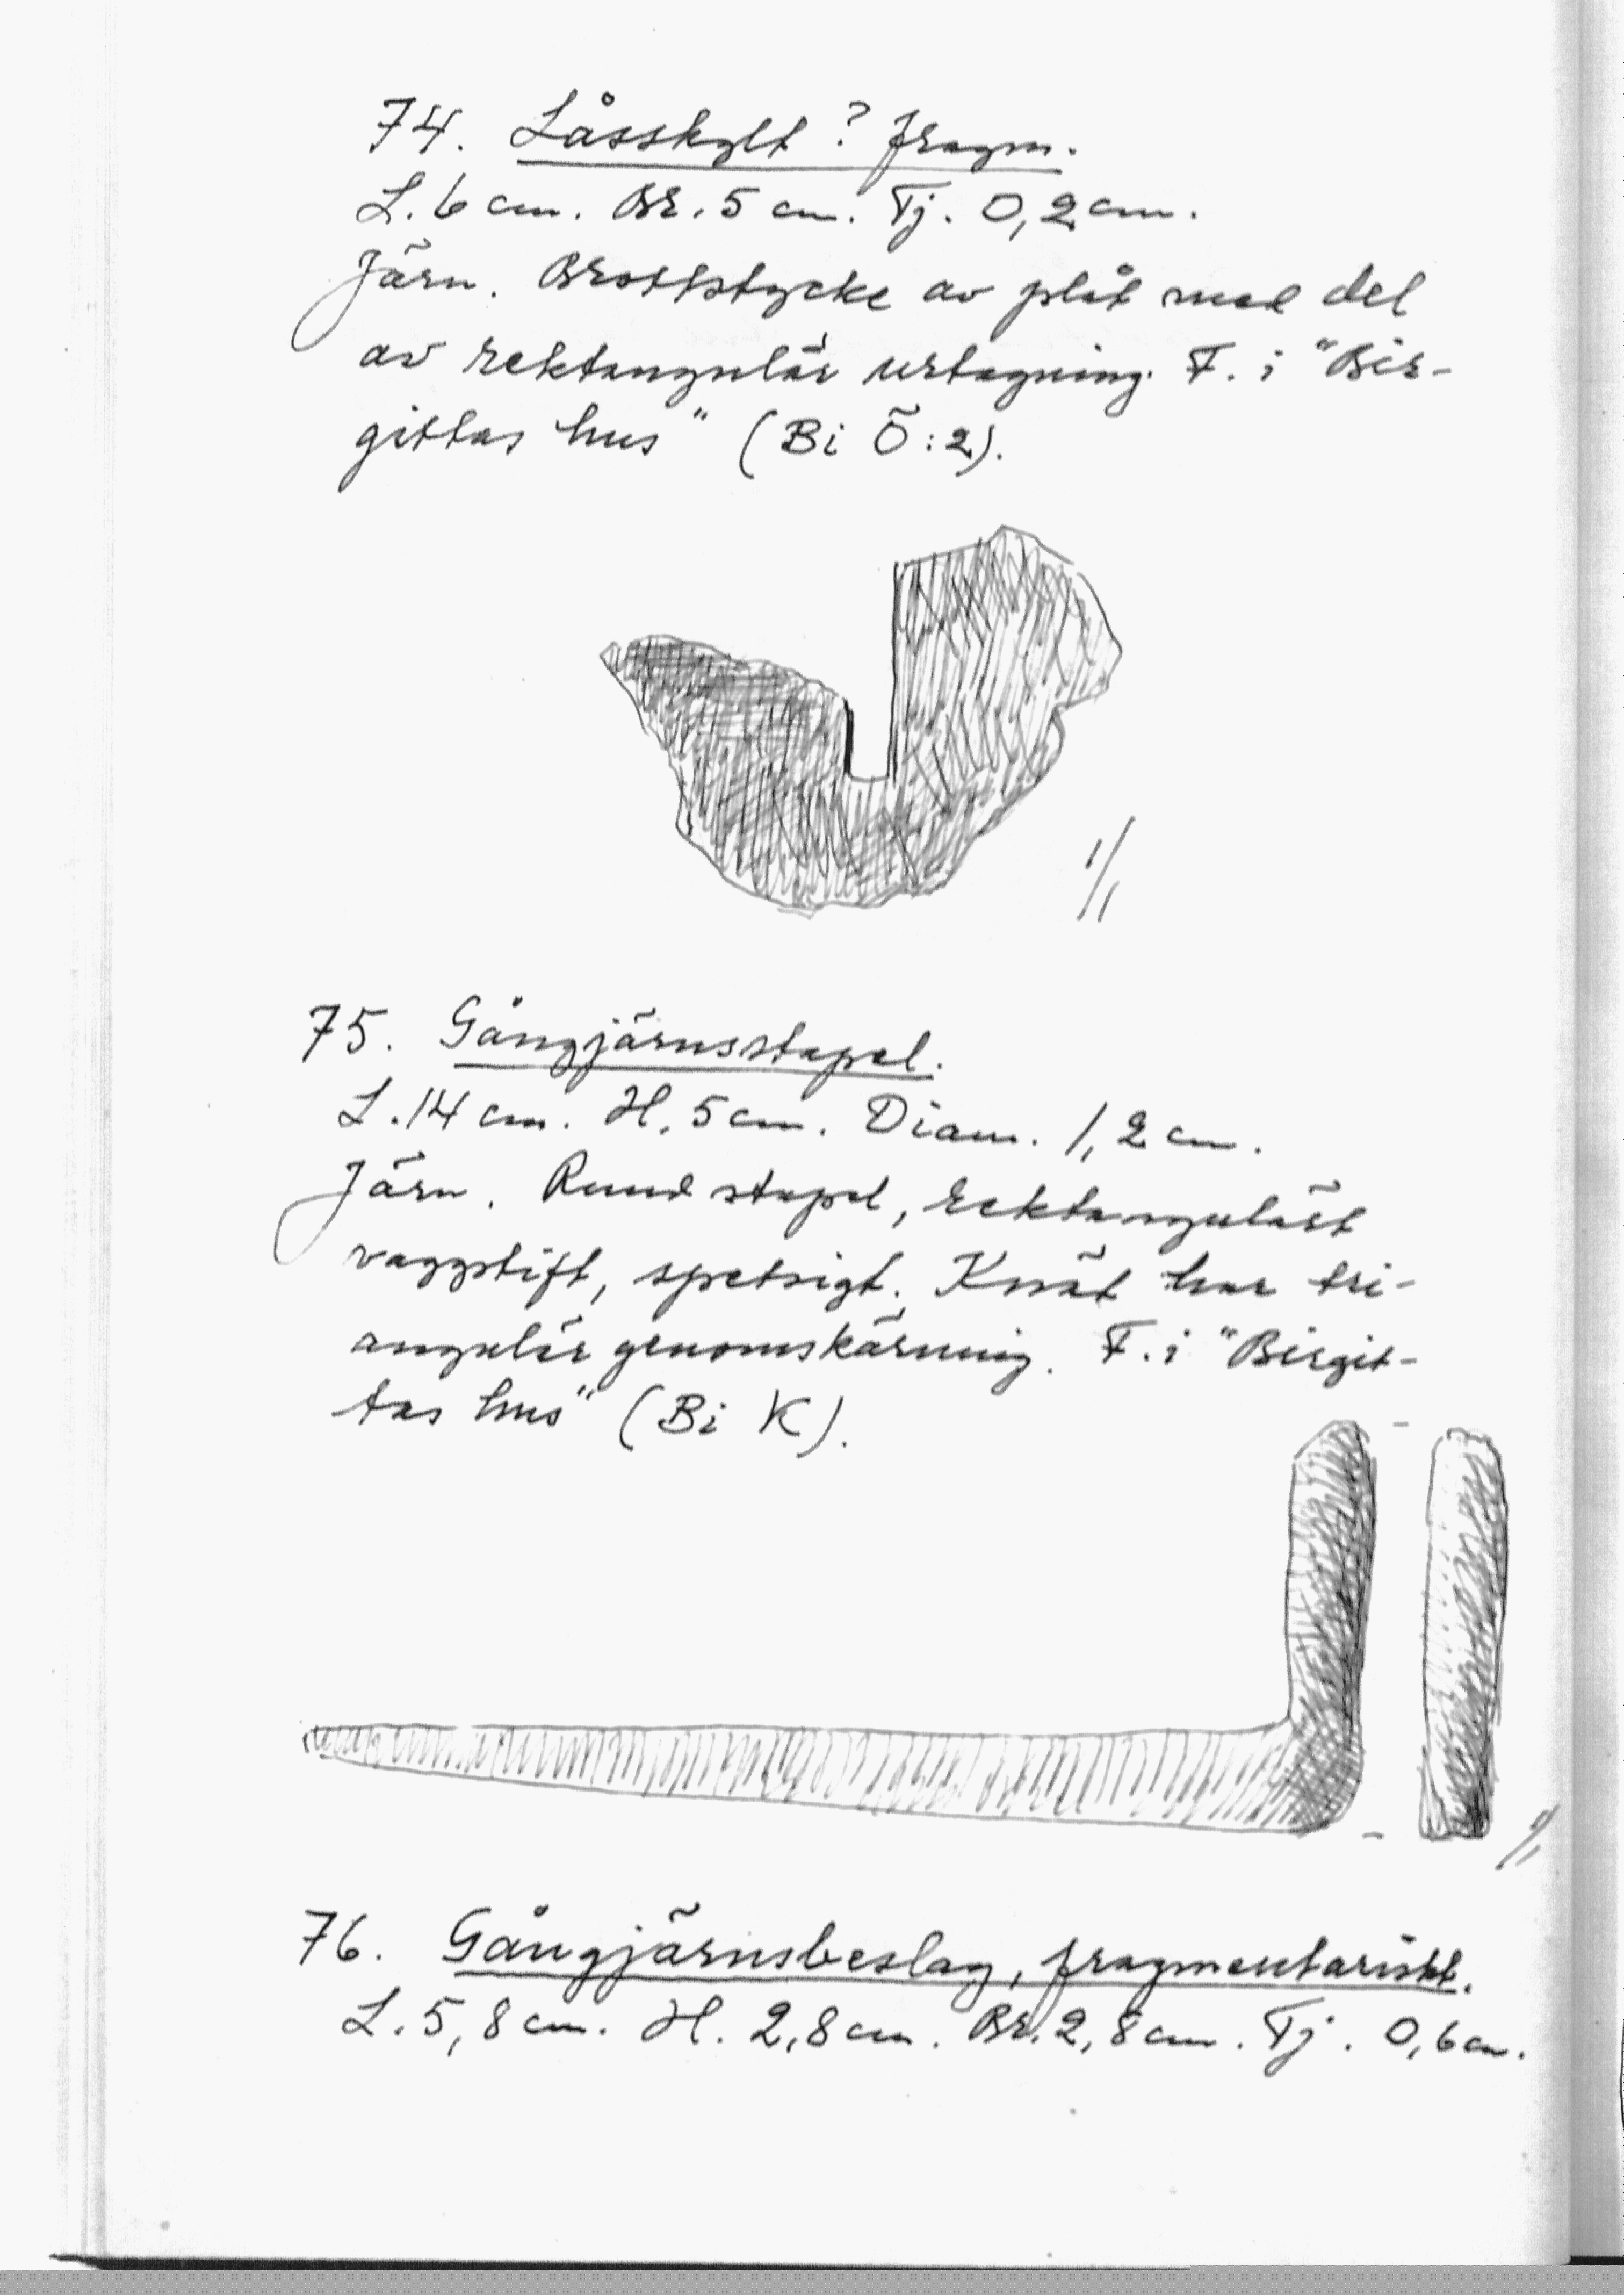 74. Låsskylt? fragm.
L. 6 cm. Br. 5 cm. Tj. 0,2 cm.
Järn. Brottstycke av plåt med del
av rektangulär urtagning. F. i "Bir-
gittas hus" (Bi Ö:2).
1/1
75. Gångjärnsstapel.
L. 14 cm. H. 5 cm. Diam. 1,2 cm.
Järn. Rund stapel, rektangulärt
väggstift, spetsigt. Knät har tri-
angulär genomskärning. F. i "Birgit-
tas hus" (Bi K).
1/1
76. Gångjärnsbeslag, fragmentariskt.
L. 5,8 cm. H. 2,8 cm. Br. 2,8 cm. Tj. 0,6 cm.